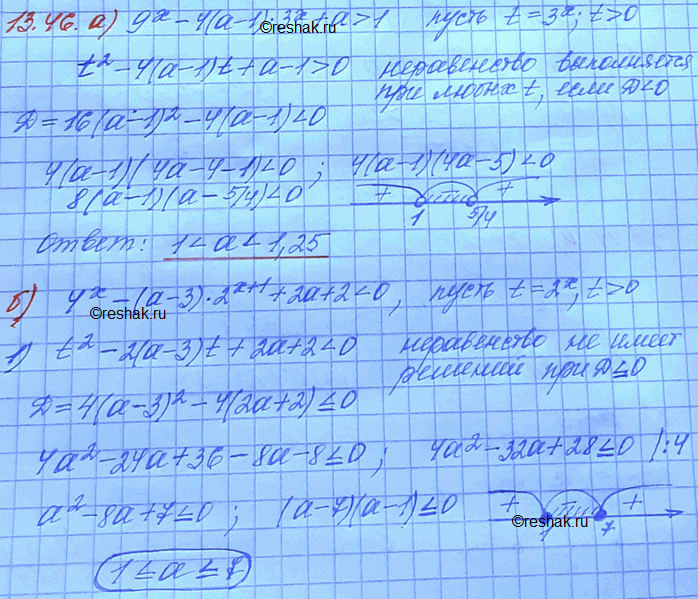 13.46. а) 9ˣ - 4(a-1)·3ˣ + a > 1 пусть t = 3ˣ; t > 0
reshak.ru
t² - 4(a-1)t + a - 1 > 0 неравенство выполняется
при любых t, если D < 0
D = 16(a-1)² - 4(a-1) < 0
4(a-1)(4a-4-1) < 0 ; 4(a-1)(4a-5) < 0
8(a-1)(a-5/4) < 0
+ - +
1 5/4
ответ: 1 < a < 1,25
б) 4ˣ - (a-3)·2ˣ⁺¹ + 2a + 2 < 0, пусть t = 2ˣ, t > 0
©reshak.ru
1) t² - 2(a-3)t + 2a + 2 < 0 неравенство не имеет
решений при D ≤ 0
D = 4(a-3)² - 4(2a+2) ≤ 0
4a² - 24a + 36 - 8a - 8 ≤ 0 ; 4a² - 32a + 28 ≤ 0 |:4
a² - 8a + 7 ≤ 0 ; (a-7)(a-1) ≤ 0
+ - +
©reshak.ru
1 7
1 ≤ a ≤ 7